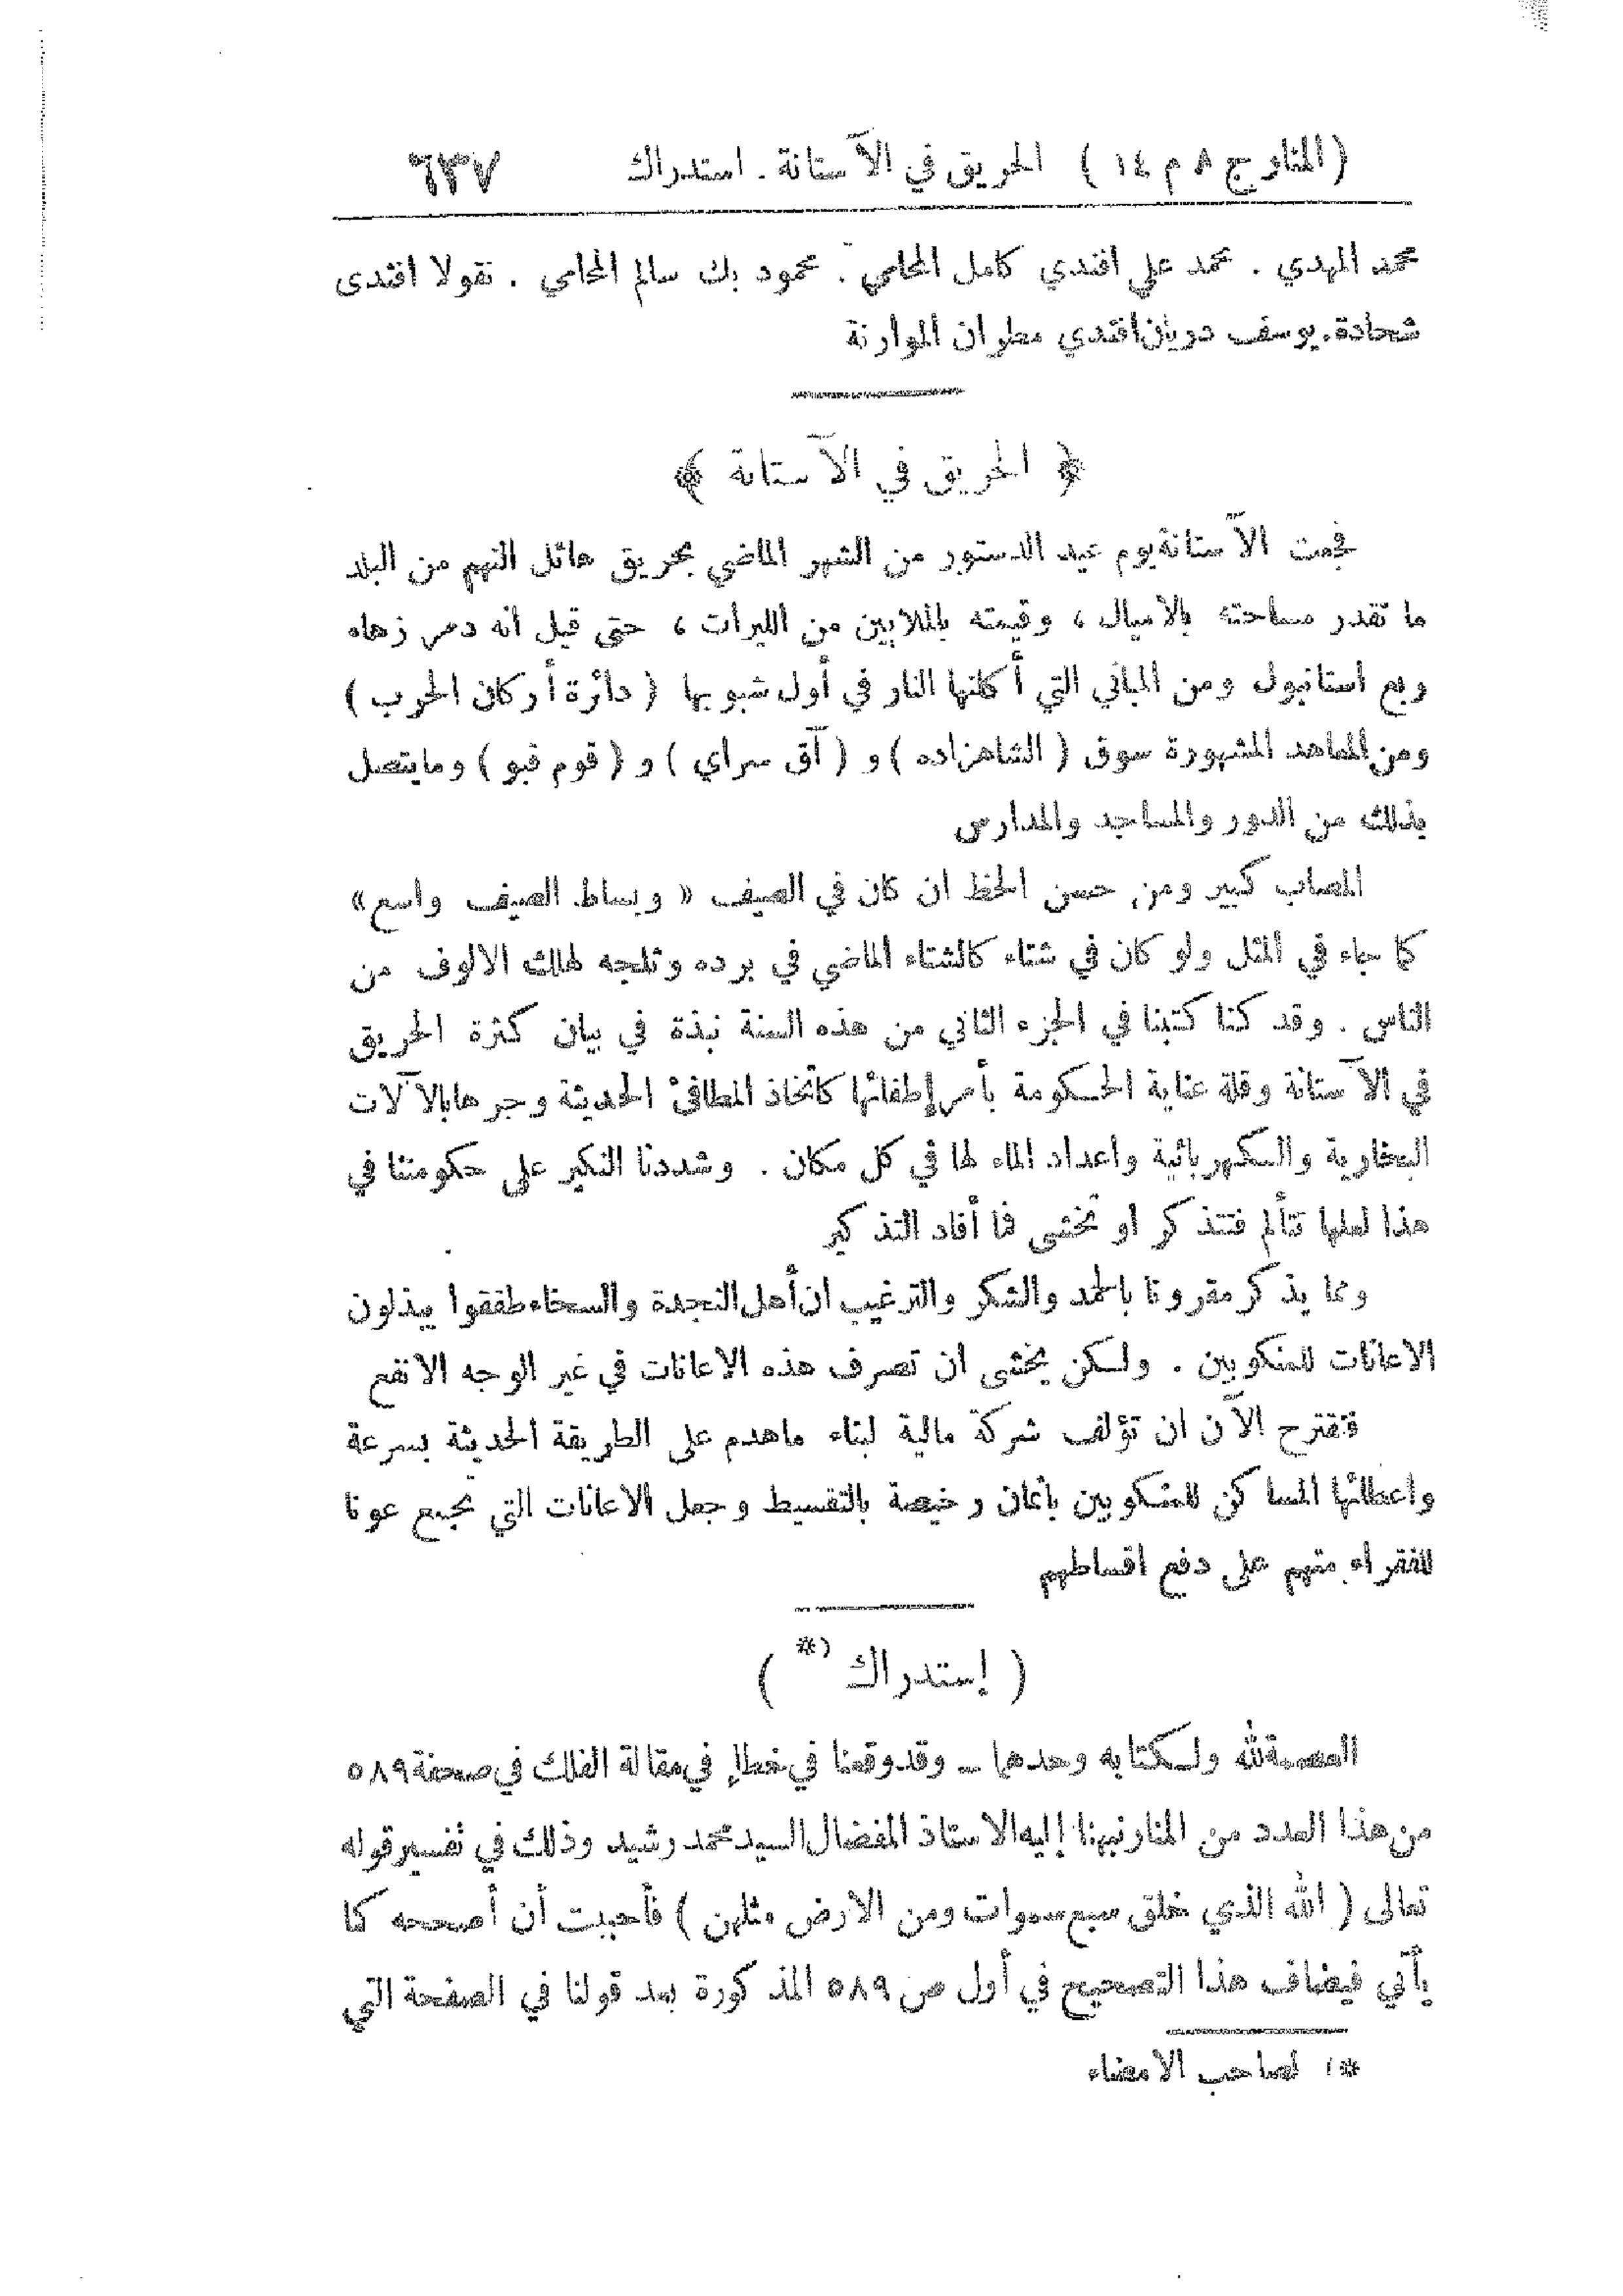 (المنار ج ٨ م ١٤) الحريق في الآستانة . استدراك ٦٣٧
محمد المهدي . محمد علي افندي كامل المحامي . محمود بك سالم المحامي . نقولا افندى
شحادة. يوسف دريان افندي مطران الموارنة
﴿ الحريق في الآستانة ﴾
فجعت الآستانة يوم عيد الدستور من الشهر الماضي بحريق هائل التهم من البلد
ما تقدر مساحته بالاميال ، وقيمته بالملايين من الليرات ، حتى قيل انه دمر زهاء
ربع استانبول ومن المباني التي أكلتها النار في أول شبوبها ( دائرة أركان الحرب )
ومن المعاهد المشهورة سوق ( الشاهزاده ) و ( آق سراي ) و ( قوم قبو ) وما يتصل
بذلك من الدور والمساجد والمدارس
المصاب كبير ومن حسن الحظ ان كان في الصيف « وبساط الصيف واسع»
كما جاء في المثل ولو كان في شتاء كالشتاء الماضي في برده وثلجه لهلك الالوف من
الناس . وقد كنا كتبنا في الجزء الثاني من هذه السنة نبذة في بيان كثرة الحريق
في الآستانة وقلة عناية الحكومة بأمر إطفائها كاتخاذ المطافئ الحديثة وجرها بالآلات
البخارية والكهربائية واعداد الماء لها في كل مكان . وشددنا النكير على حكومتنا في
هذا لعلها تتألم فتتذكر او تخشى فما أفاد التذكير
ومما يذكر مقرونا بالحمد والشكر والترغيب ان أهل النجدة والسخاء طفقوا يبذلون
الاعانات للمنكوبين . ولكن يخشى ان تصرف هذه الاعانات في غير الوجه الانفع
فنقترح الآن ان تؤلف شركة مالية لبناء ما هدم على الطريقة الحديثة بسرعة
واعطائها المساكن للمنكوبين بأثمان رخيصة بالتقسيط وجعل الاعانات التي تجمع عونا
للفقراء منهم على دفع اقساطهم
( إستدراك *) )
العصمة لله ولكتابه وحدهما ــ وقد وقعنا في خطإ في مقالة الفلك في صحفة ٥٨٩
من هذا العدد من المنار نبهنا إليه الاستاذ المفضال السيد محمد رشيد وذلك في تفسير قوله
تعالى ( الله الذي خلق سبع سموات ومن الارض مثلهن ) فأحببت أن أصححه كما
يأتي فيضاف هذا التصحيح في أول ص ٥٨٩ المذكورة بعد قولنا في الصفحة التي
*) لصاحب الامضاء